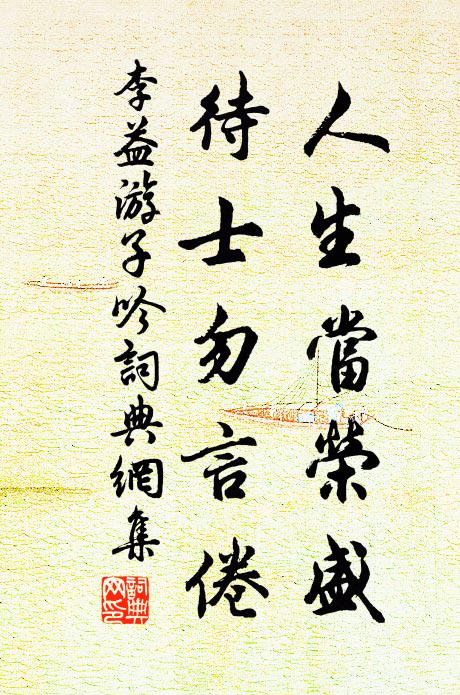 人生當榮盛
待士勿言倦
李益游子吟詞典網集
詞典
网印